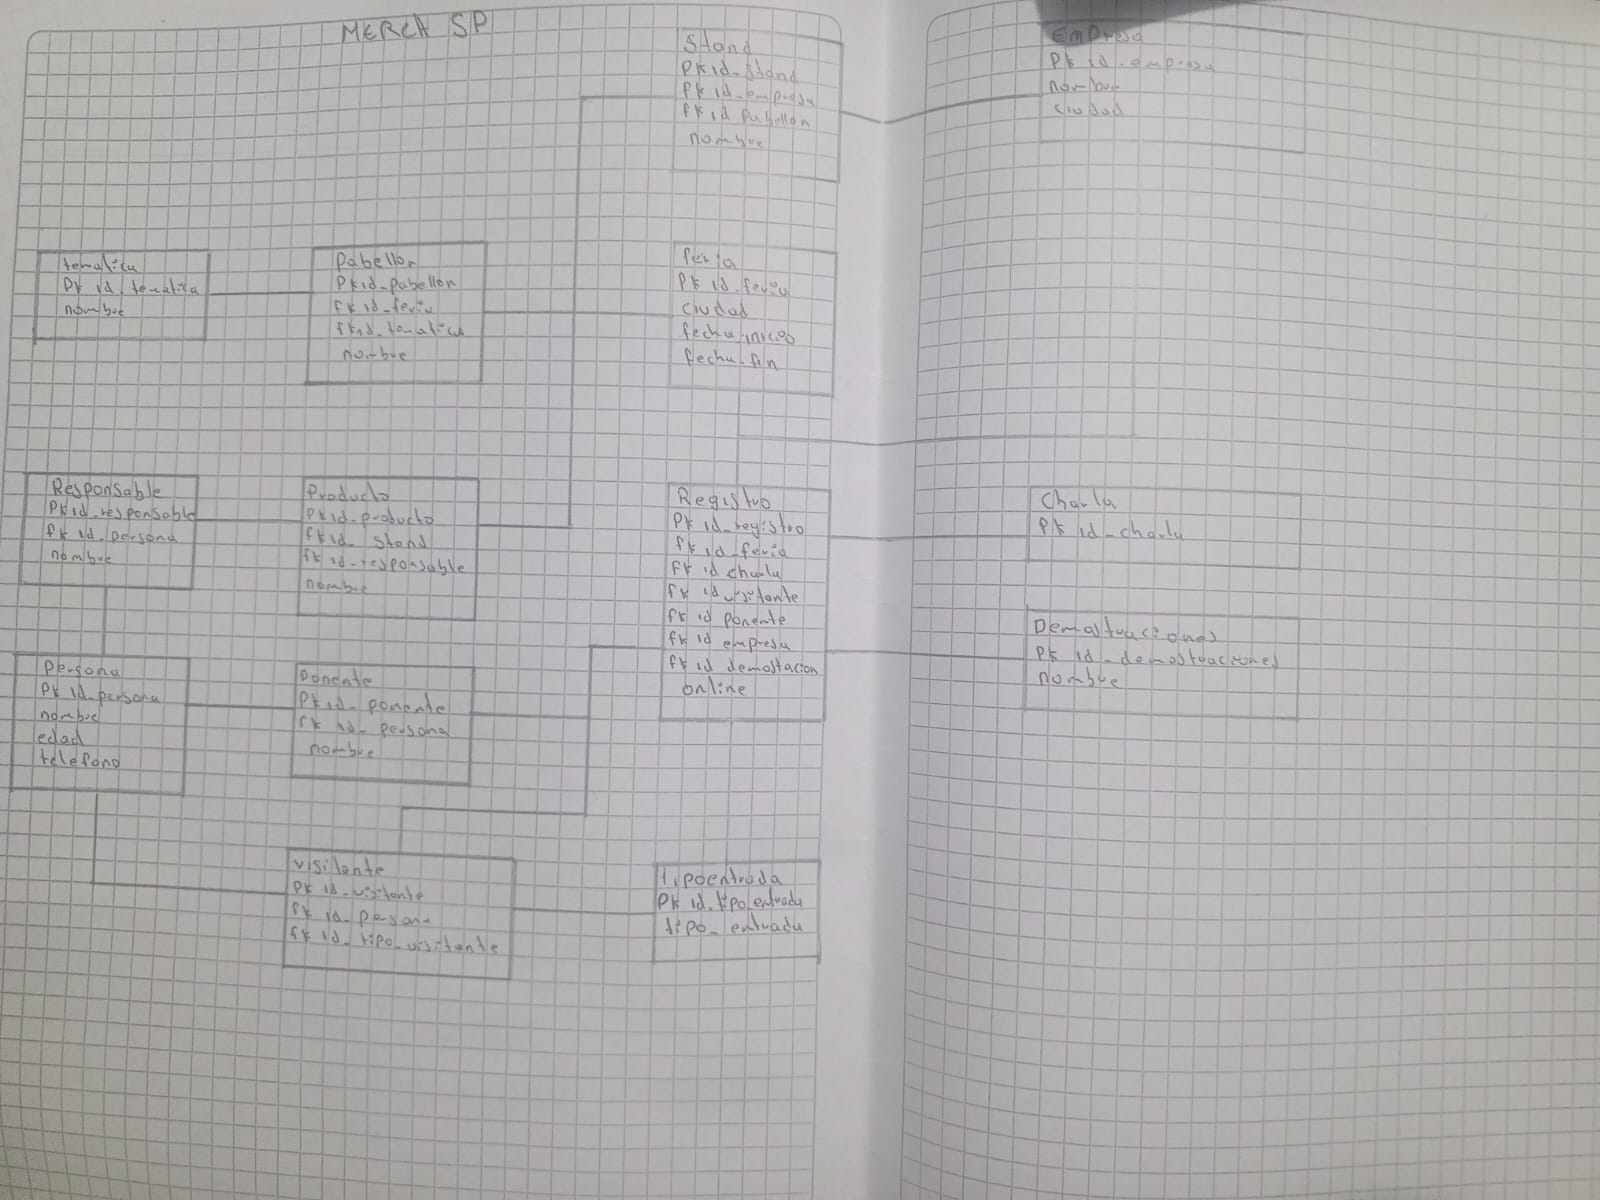 MERCH SP
Stand
PK id_stand
PK id_empresa
fk id pabellon
nombre
Empresa
PK id_empresa
nombre
ciudad
tematica
PK id_tematica
nombre
Pabellon
PK id_pabellon
fk id_feria
fk id_tematica
nombre
feria
PK id_feria
ciudad
fecha_inicio
fecha_fin
Responsable
PK id_responsable
fk id_persona
nombre
Producto
PK id_producto
fk id_ stand
fk id_responsable
nombre
Registro
PK id_registro
fk id_feria
fk id charla
fk id visitante
fk id ponente
fk id empresa
fk id demostacion
online
Charla
PK id_charla
Demostraciones
PK id_demostraciones
nombre
Persona
PK id_persona
nombre
edad
telefono
Ponente
PK id_ ponente
fk id_ persona
nombre
visitante
PK id_visitante
fk id_ persona
fk id_ tipo_visitante
tipoentrada
PK id_tipo_entrada
tipo_ entrada